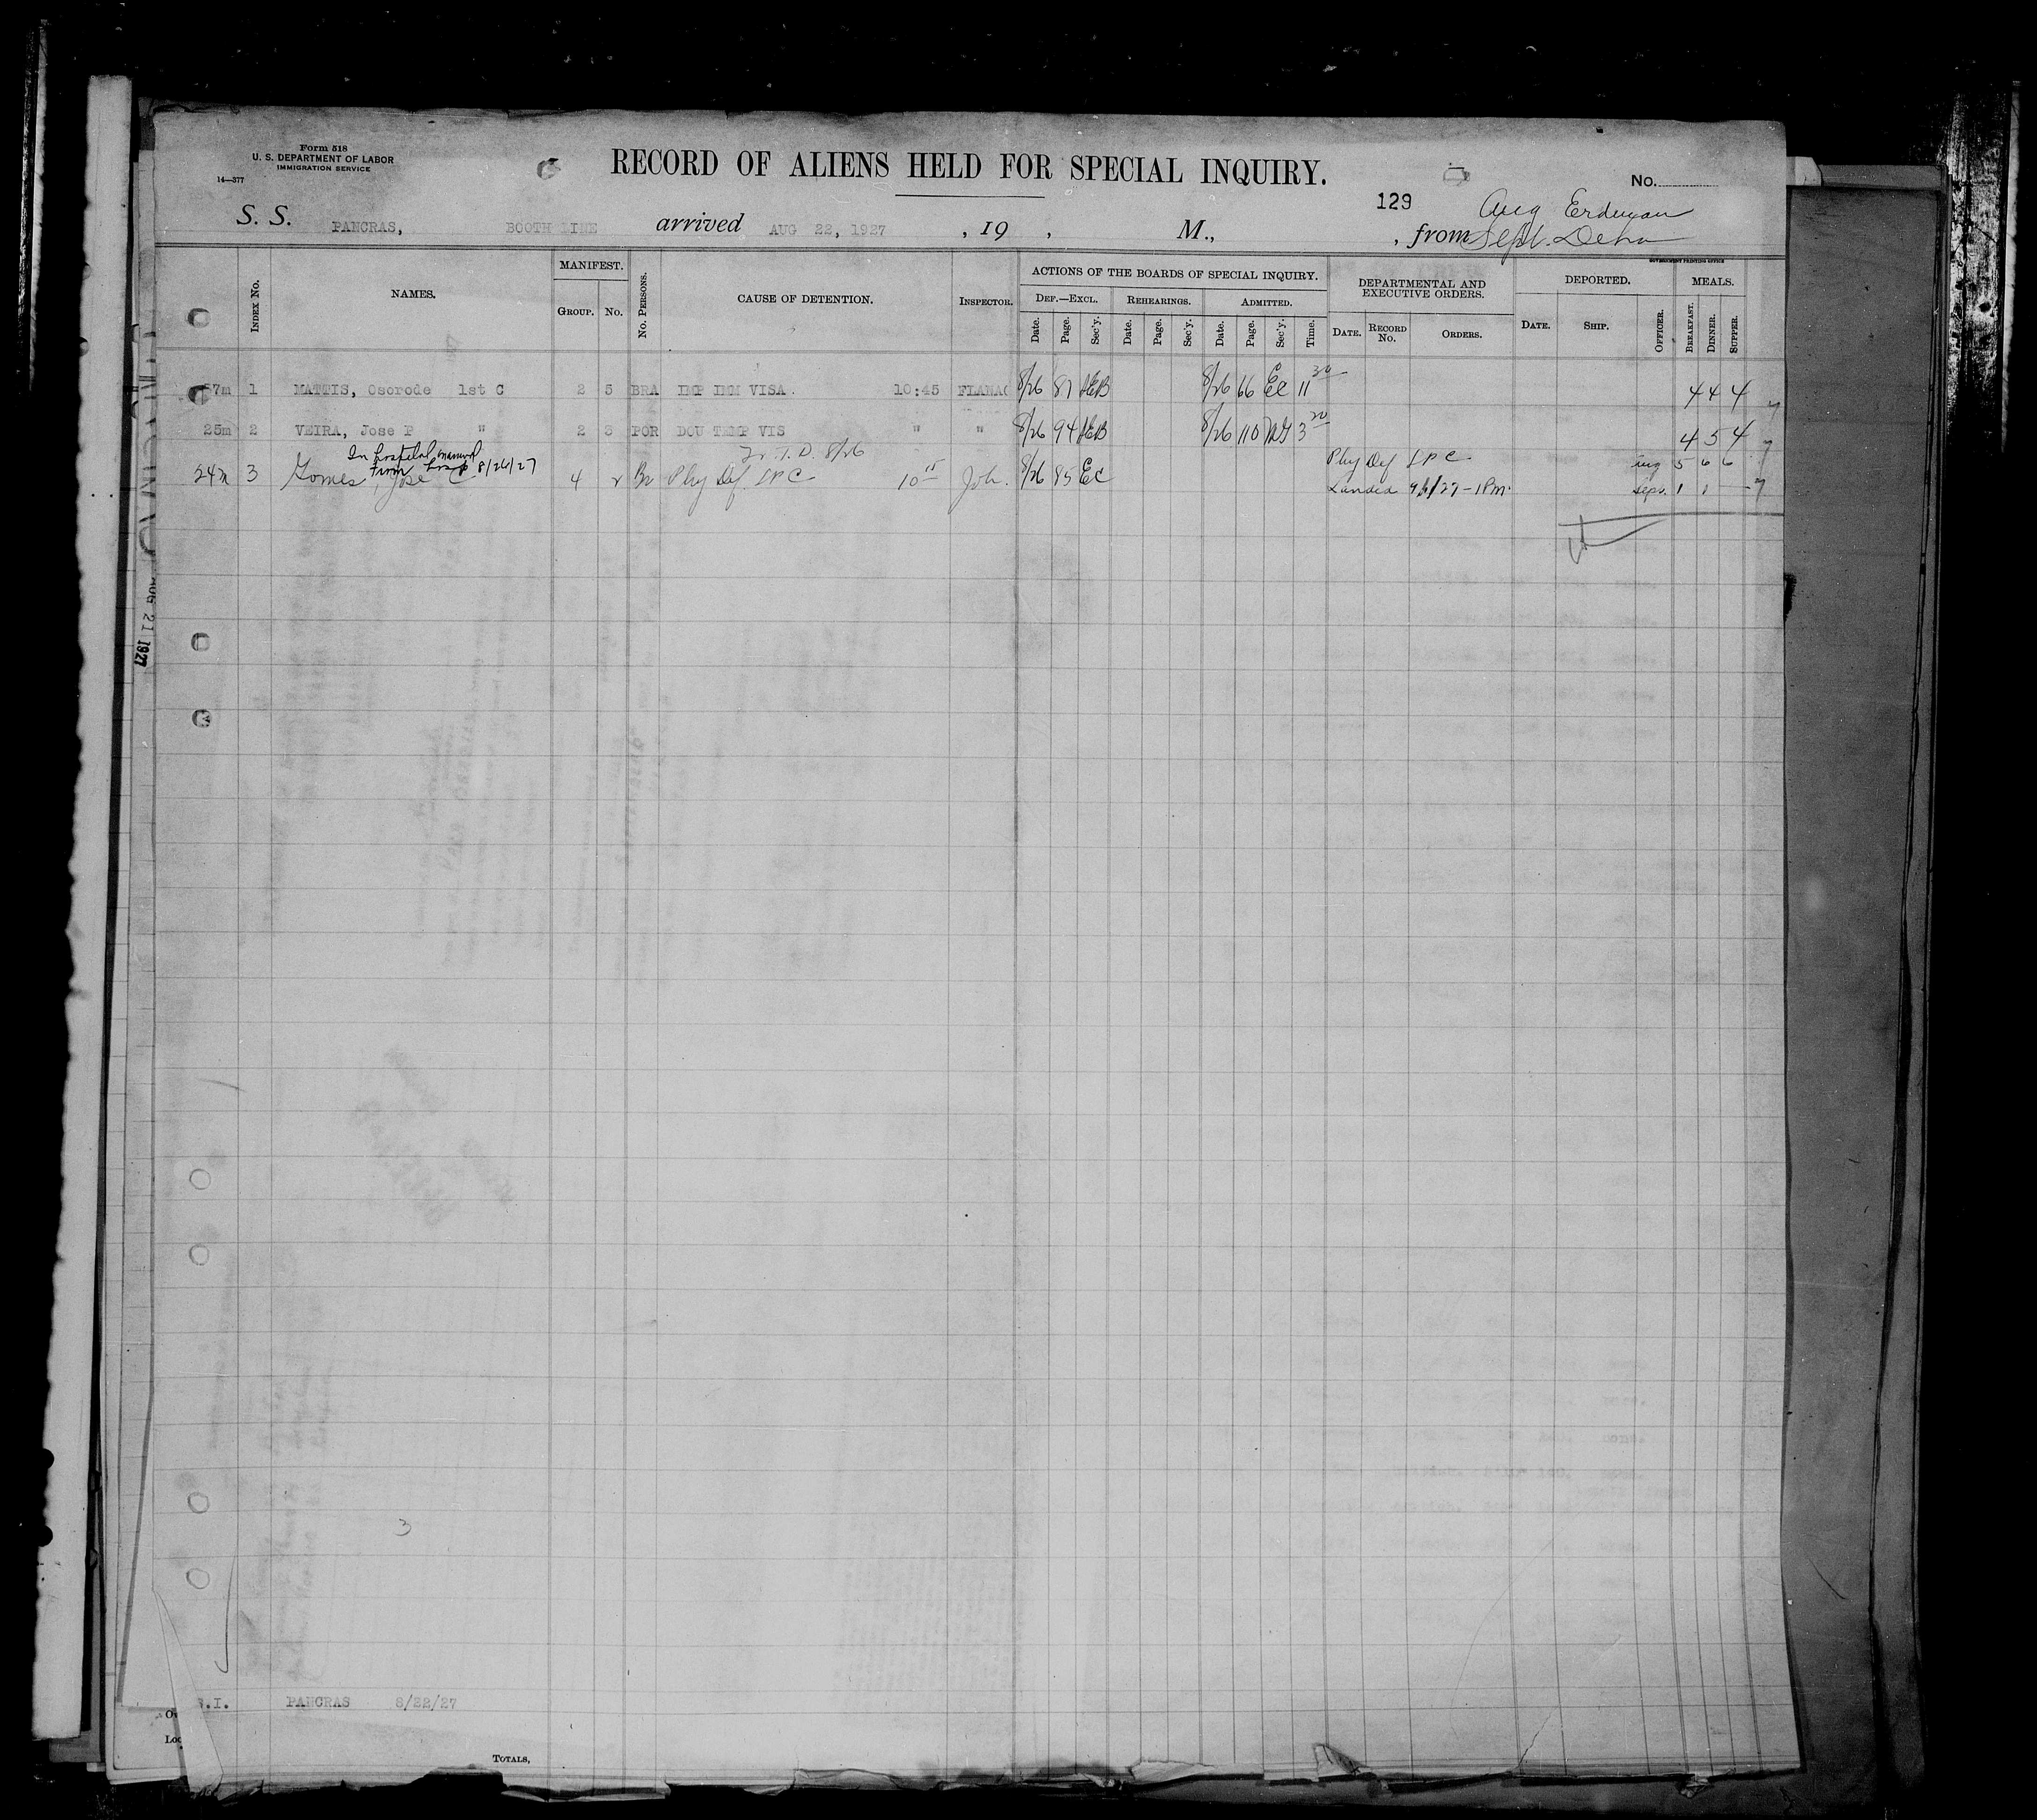 Form 518
U. S. DEPARTMENT OF LABOR
IMMIGRATION SERVICE
14—377
RECORD OF ALIENS HELD FOR SPECIAL INQUIRY.
No.
129
Aug Erdman
S. S. PANCRAS, BOOTH LINE arrived AUG 22, 1927 , 19 , M., , from Sept.
GOVERNMENT PRINTING OFFICE
INDEX No. NAMES. MANIFEST. GROUP. No. No. PERSONS. CAUSE OF DETENTION. INSPECTOR. ACTIONS OF THE BOARDS OF SPECIAL INQUIRY. DEPARTMENTAL AND EXECUTIVE ORDERS. DEPORTED. MEALS.
DEF.—EXCL. REHEARINGS. ADMITTED.
Date. Page. Sec'y. Date. Page. Sec'y. Date. Page. Sec'y. Time. DATE. RECORD No. ORDERS. DATE. SHIP. OFFICER. BREAKFAST. DINNER. SUPPER.
57m 1 MATTIS, Osorode 1st C 2 5 BRA IMP IMM VISA 10:45 FLANAG 8/26 87 HEB 8/26 66 EC 11 30 4 4 4
25m 2 VEIRA, Jose P " 2 3 POR DOU TEMP VIS " " 8/26 94 HEB 8/26 110 3 20 4 5 4
In hospital
from hosp 8/26/27
T. D. 8/26
24m 3 Gomes, Jose C 4 2 Br Phy Def LPC 10 15 Joh. 8/26 85 EC Phy Def LPC Aug 5 6 6
Landed 9/1/27 - 1PM. Sept. 1 1 -
AUG 21 1927
3
S.I. PANCRAS 8/22/27
TOTALS,